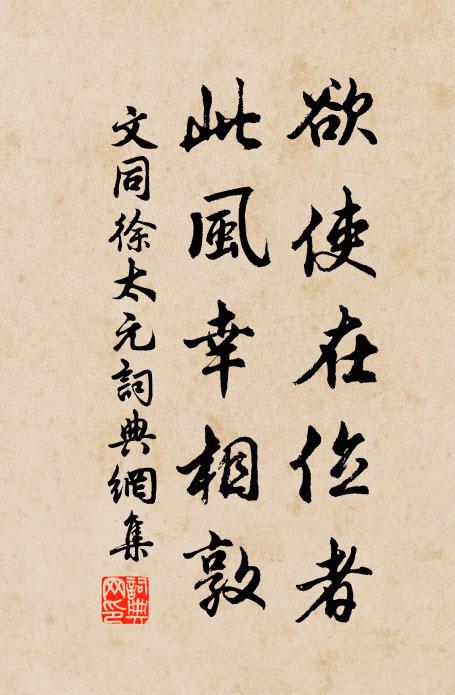 欲使在位者
此風幸相敦
文同徐太元詞典網集
詞典網印